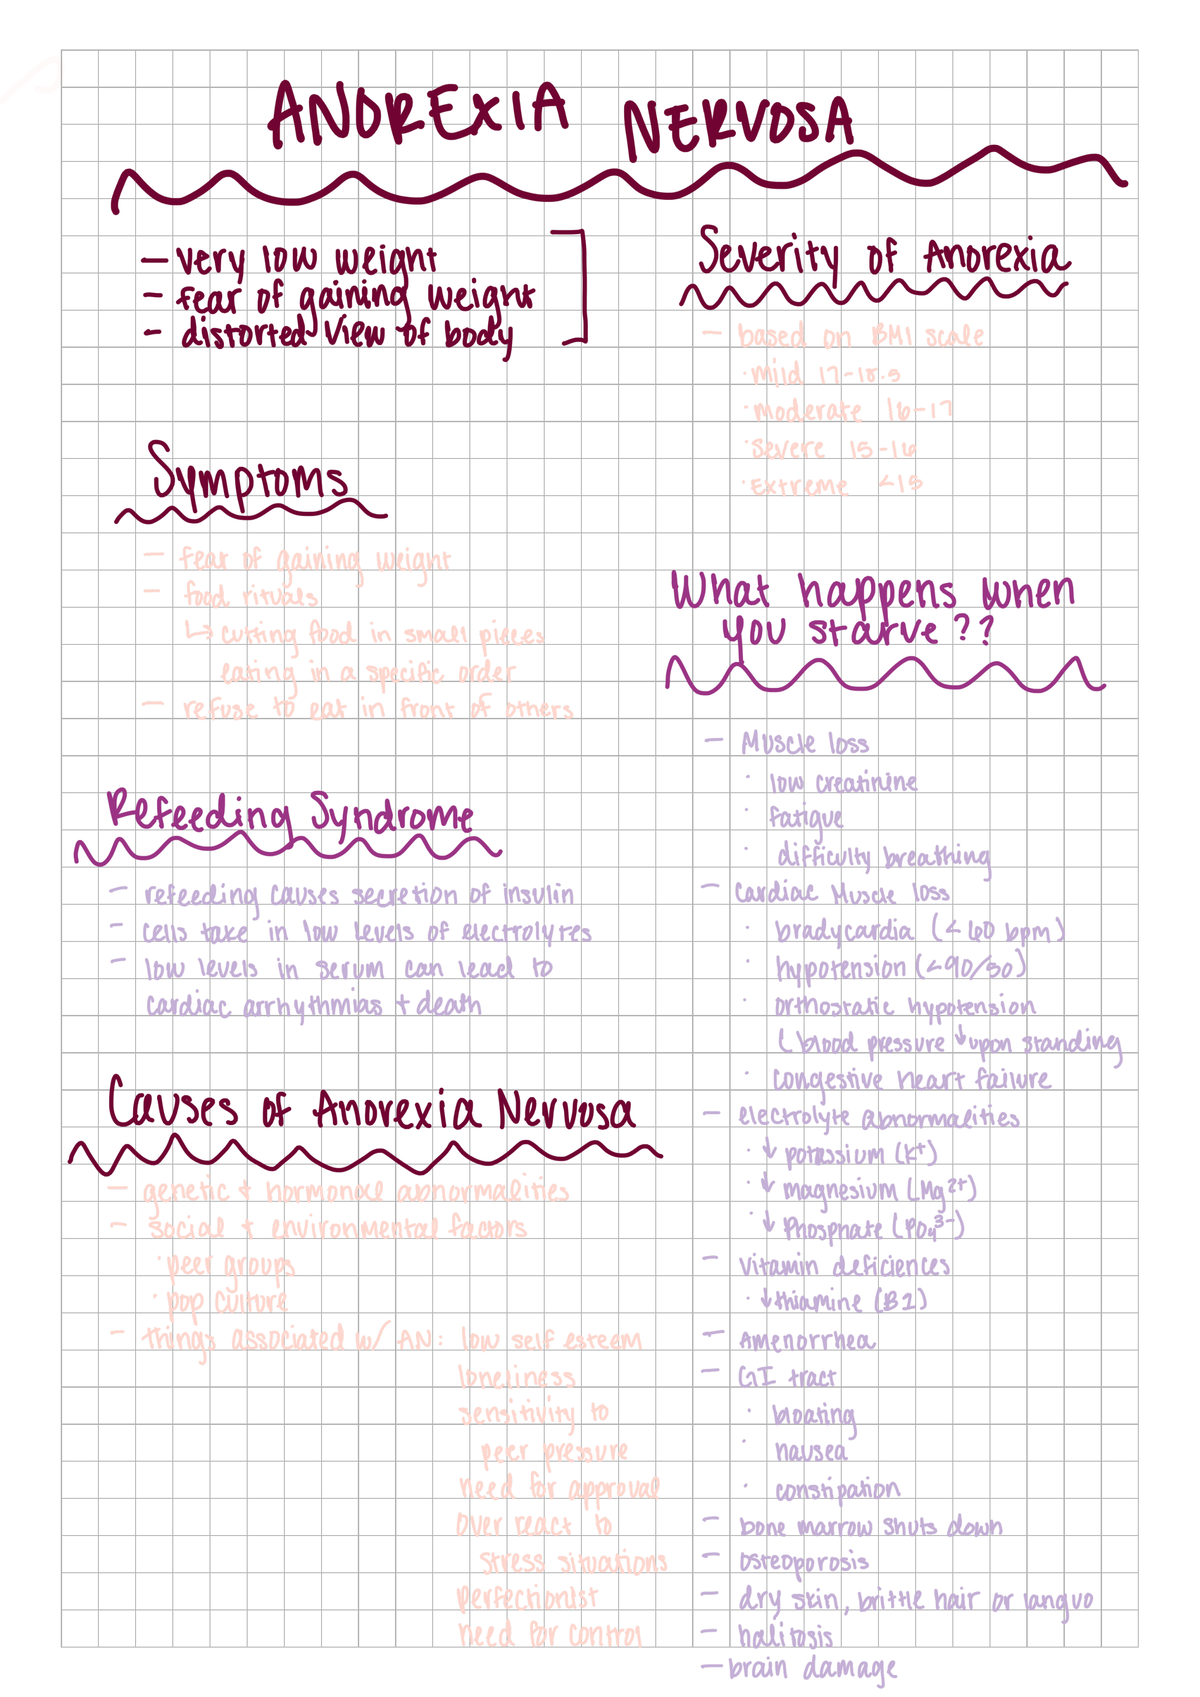 ANOREXIA NERVOSA
- very low weight
- fear of gaining weight
- distorted view of body
Symptoms
- fear of gaining weight
- food rituals
↳ cutting food in small pieces
eating in a specific order
- refuse to eat in front of others
Refeeding Syndrome
- refeeding causes secretion of insulin
- cells take in low levels of electrolytes
- low levels in serum can lead to
cardiac arrhythmias + death
Causes of Anorexia Nervosa
- genetic + hormonal abnormalities
- social + environmental factors
· peer groups
· pop culture
- things associated w/ AN: low self esteem
loneliness
sensitivity to
peer pressure
need for approval
over react to
stress situations
perfectionist
need for control
Severity of Anorexia
- based on BMI scale
· Mild 17-18.5
· Moderate 16-17
· Severe 15-16
· Extreme <15
What happens when
you starve??
- Muscle loss
· low creatinine
· fatigue
· difficulty breathing
- Cardiac Muscle loss
· bradycardia (<60 bpm)
· hypotension (<90/50)
· orthostatic hypotension
(blood pressure ↓ upon standing
· congestive heart failure
- electrolyte abnormalities
· ↓ potassium (K⁺)
· ↓ magnesium (Mg²⁺)
· ↓ Phosphate (PO₄³⁻)
- Vitamin deficiences
· ↓ thiamine (B1)
- Amenorrhea
- GI tract
· bloating
· nausea
· constipation
- bone marrow shuts down
- osteoporosis
- dry skin, brittle hair or languo
- halitosis
- brain damage